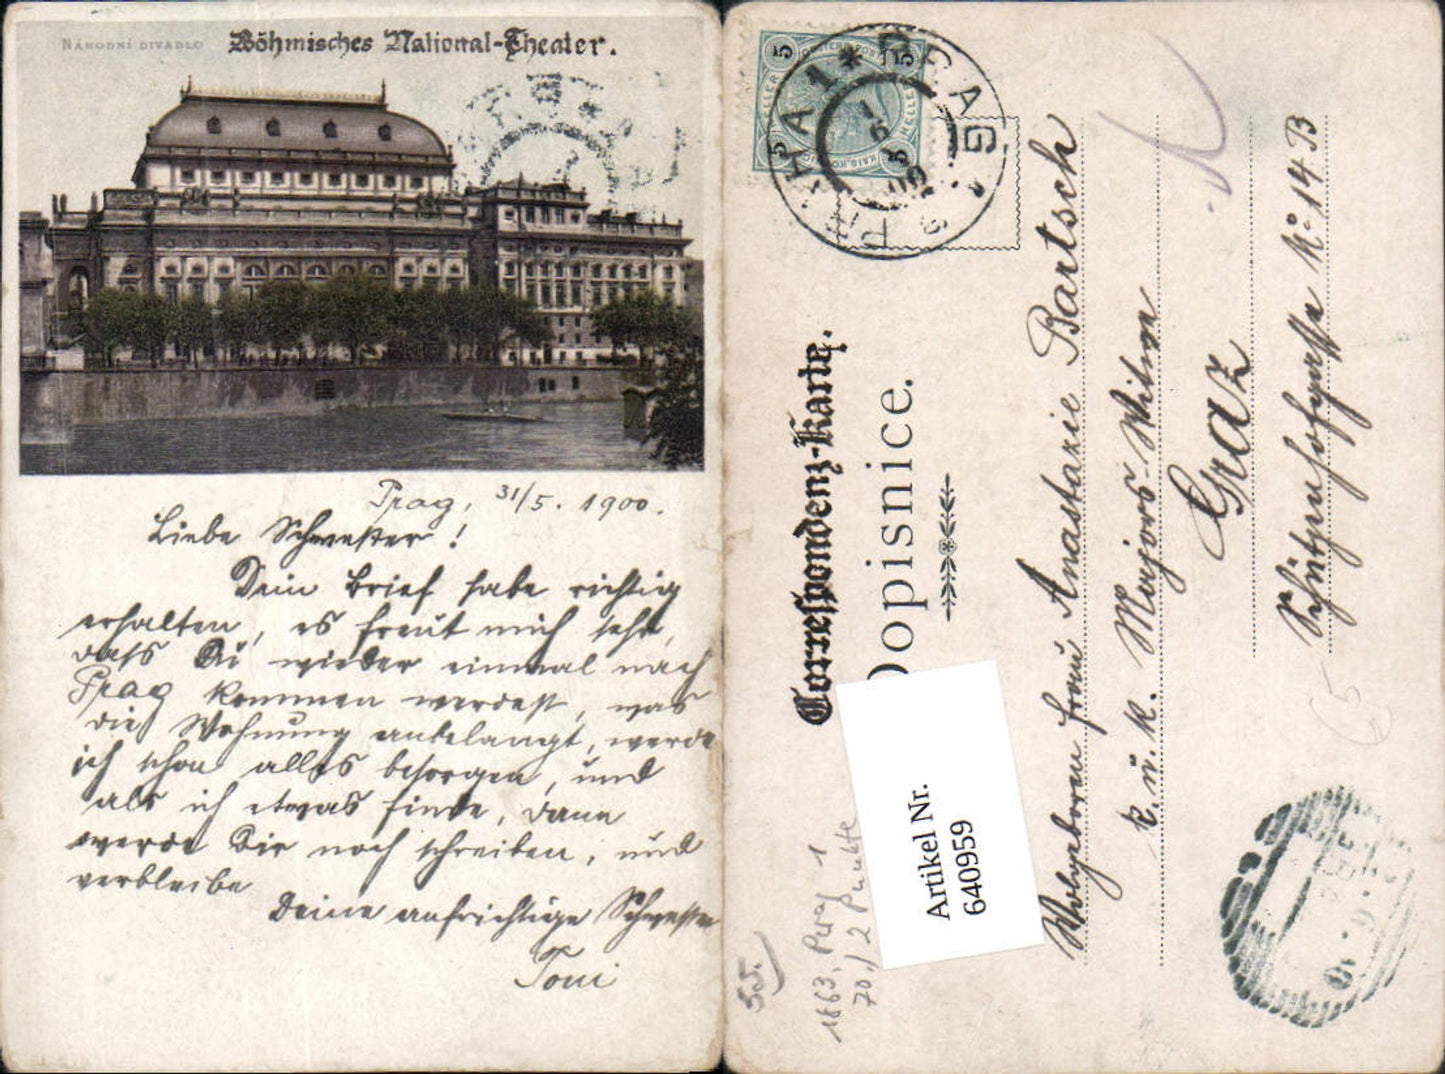 NÁRODNÍ DIVADLO
Böhmisches National-Theater.
Prag, 31/5. 1900.
Liebe Schwester!
Dein Brief habe richtig
erhalten, es freut mich sehr,
dass Du wieder einmal nach
Prag kommen werdest, was
die Wohnung anbelangt, werde
ich schon alles besorgen, und
als ich etwas finde, dann
werde Dir noch schreiben, und
verbleibe
Deine aufrichtige Schwester
Toni
5
5
5
5
HELLER
HELLER
PRAHA 1 * PRAG
Correspondenz-Karte.
Dopisnice.
Wolgeboren Frau Anastazie Bartsch
k. u. k. Majors-Witwe
Graz
Schützenhofgasse No 14 B
65
Artikel Nr.
640959
1863, Prag 1
70.) 2 Punkte